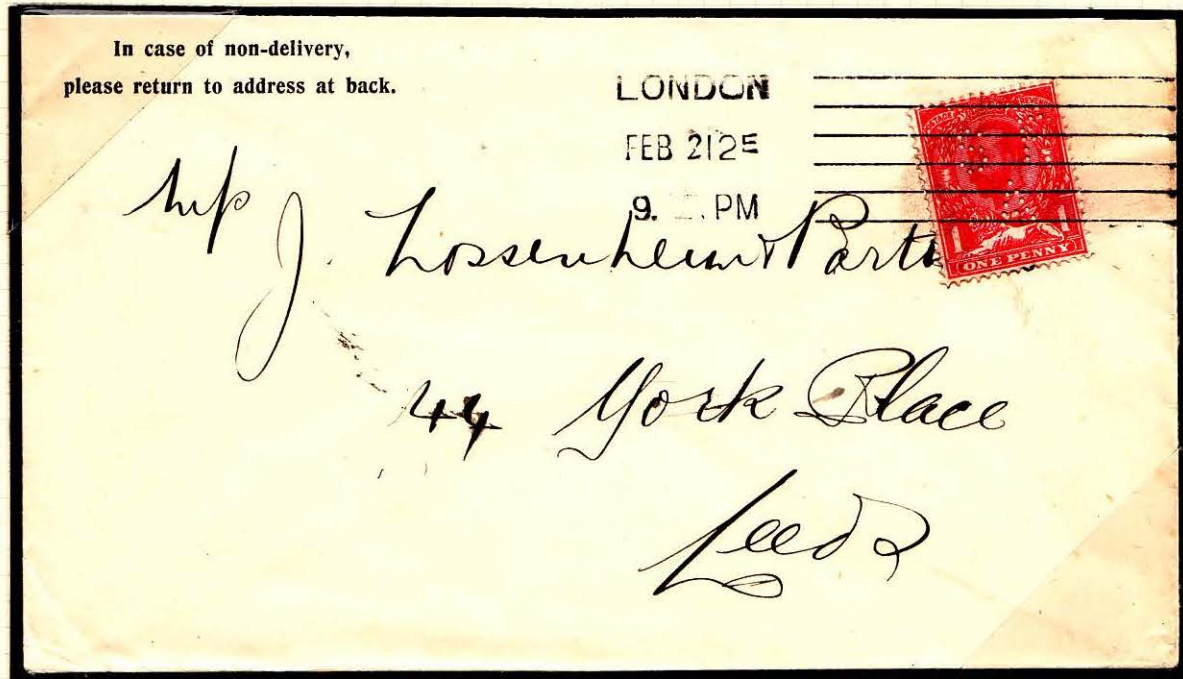 In case of non-delivery,
please return to address at back.
LONDON
FEB 21 2E
9. PM
POSTAGE REVENUE
1 1
ONE PENNY
J. Lossenheim & Partn
44 York Place
Leeds